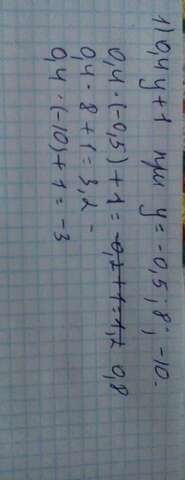 1) 0,4y+1 при y=-0,5; 8; -10.
0,4·(-0,5)+1= -0,2+1=1,2 0,8
0,4·8+1=3,2
0,4·(-10)+1=-3